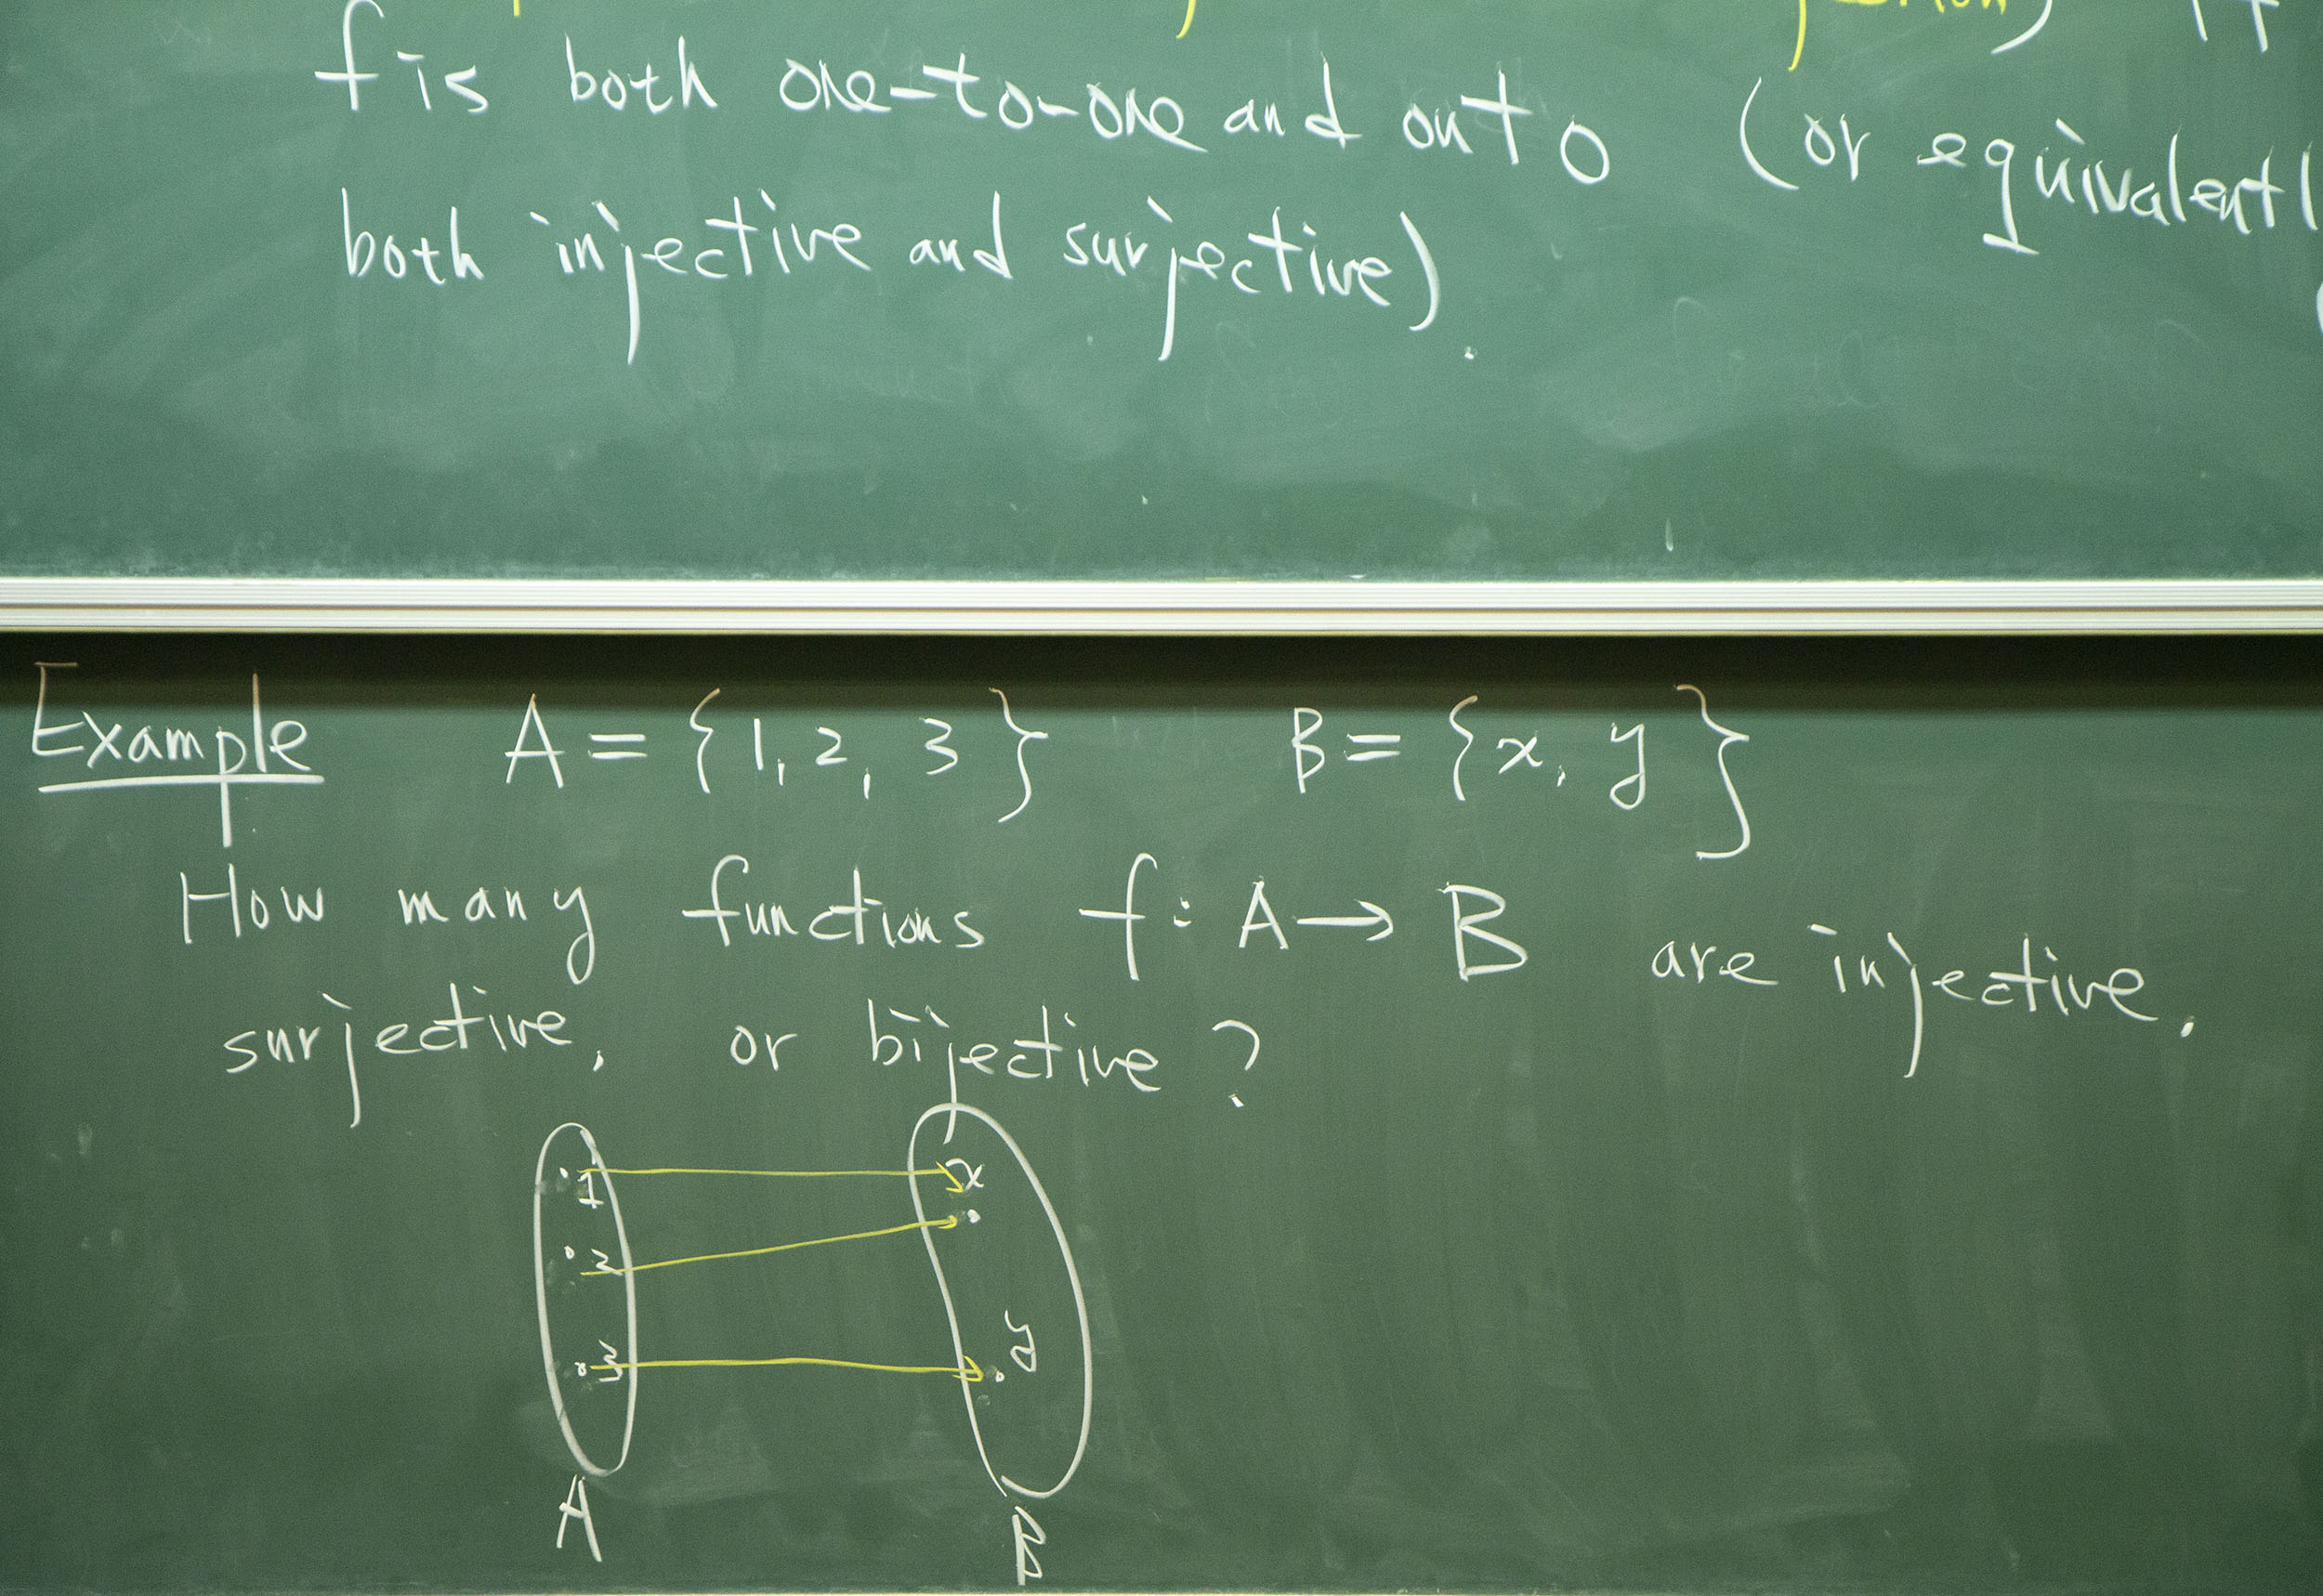 f is both one-to-one and onto (or equivalentl
both injective and surjective).
Example A = {1, 2, 3} B = {x, y}
How many functions f: A → B are injective,
surjective, or bijective?
1 x
2
3 y
A B